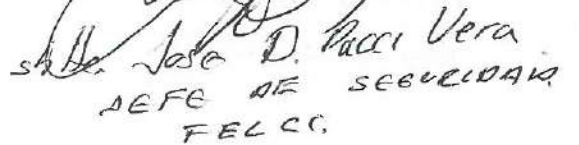 Jose D. Pacci Vera
JEFE DE SEGURIDAD.
FELCC.